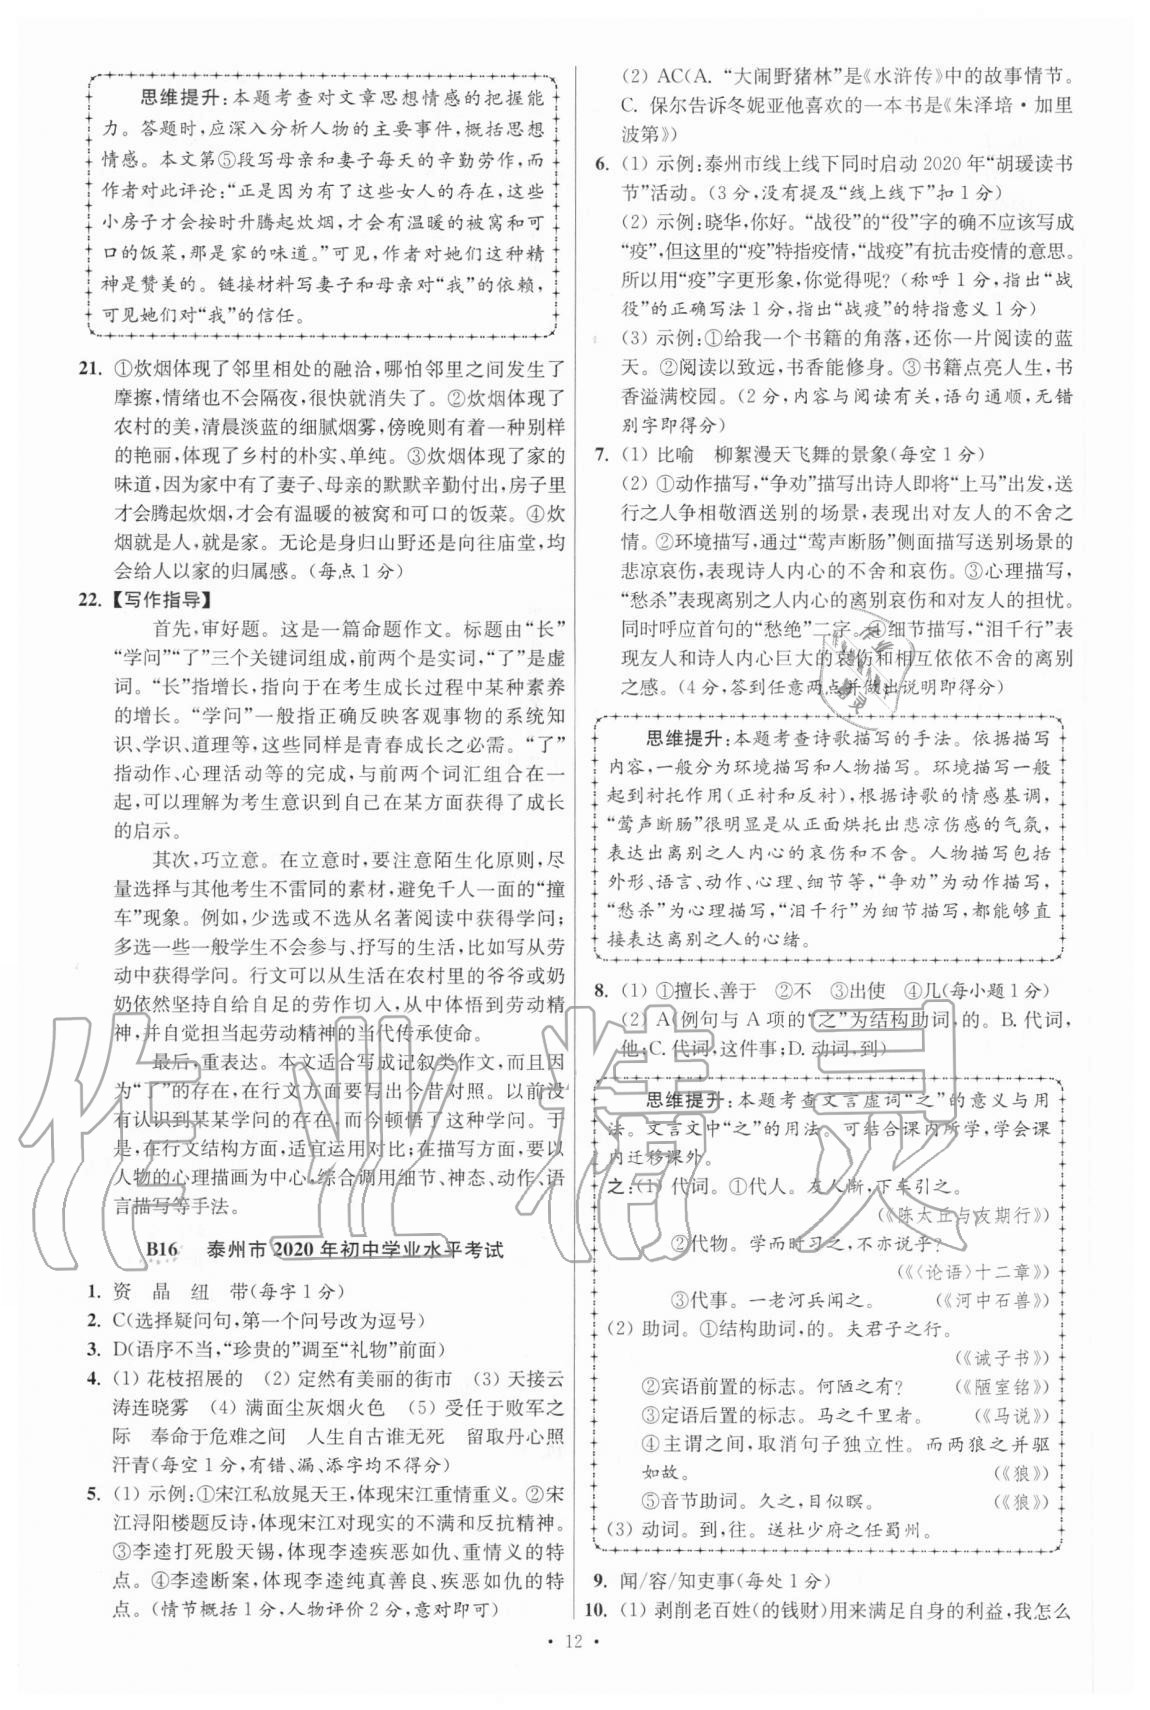 思维提升:本题考查对文章思想情感的把握能
力。答题时,应深入分析人物的主要事件,概括思想
情感。本文第⑤段写母亲和妻子每天的辛勤劳作,而
作者对此评论:“正是因为有了这些女人的存在,这些
小房子才会按时升腾起炊烟,才会有温暖的被窝和可
口的饭菜,那是家的味道。”可见,作者对她们这种精
神是赞美的。链接材料写妻子和母亲对“我”的依赖,
可见她们对“我”的信任。
21. ①炊烟体现了邻里相处的融洽,哪怕邻里之间发生了
摩擦,情绪也不会隔夜,很快就消失了。②炊烟体现了
农村的美,清晨淡蓝的细腻烟雾,傍晚则有着一种别样
的艳丽,体现了乡村的朴实、单纯。③炊烟体现了家的
味道,因为家里有了妻子、母亲的默默辛勤付出,房子里
才会腾起炊烟,才会有温暖的被窝和可口的饭菜。④炊
烟就是人,就是家。无论是身归山野还是向往庙堂,均
会给人以家的归属感。(每点1分)
22. 【写作指导】
首先,审好题。这是一篇命题作文。标题由“长”
“学问”“了”三个关键词组成,前两个是实词,“了”是虚
词。“长”指增长,指向于在考生成长过程中某种素养
的增长。“学问”一般指正确反映客观事物的系统知
识、学识、道理等,这些同样是青春成长之必需。“了”
指动作、心理活动等的完成,与前两个词汇组合在一
起,可以理解为考生意识到自己在某方面获得了成长
的启示。
其次,巧立意。在立意时,要注意陌生化原则,尽
量选择与其他考生不雷同的素材,避免千人一面的“撞
车”现象。例如,少选或不选从名著阅读中获得学问;
多选一些一般学生不会参与、抒写的生活,比如写从劳
动中获得学问。行文可以从生活在农村里的爷爷或奶
奶依然坚持自给自足的劳作切入,从中体悟到劳动精
神,并自觉担当起劳动精神的当代传承使命。
最后,重表达。本文适合写成记叙类作文,而且因
为“了”的存在,在行文方面要写出今昔对比。以前没
有认识到某某学问的存在,而今顿悟了这种学问。于
是,在行文结构方面,适宜运用对比;在描写方面,要以
人物的心理描画为中心,综合调用细节、神态、动作、语
言描写等手法。
B16 泰州市2020年初中学业水平考试
1. 资 晶 纽 带(每字1分)
2. C(选择疑问句,第一个问号改为逗号)
3. D(语序不当,“珍贵的”调至“礼物”前面)
4. (1) 花枝招展的 (2) 定然有美丽的街市 (3) 天接云
涛连晓雾 (4) 满面尘灰烟火色 (5) 受任于败军之
际 奉命于危难之间 人生自古谁无死 留取丹心照
汗青(每空1分,有错、漏、添字均不得分)
5. (1) 示例:①宋江私放晁天王,体现宋江重情重义。②宋
江浔阳楼题反诗,体现宋江对现实的不满和反抗精神。
③李逵打死殷天锡,体现李逵疾恶如仇、重情重义的特
点。④李逵断案,体现李逵纯真善良、疾恶如仇的特
点。(情节概括1分,人物评价2分,意对即可)
(2) AC(A. “大闹野猪林”是《水浒传》中的故事情节。
C. 保尔告诉冬妮亚他喜欢的一本书是《朱泽培·加里
波第》)
6. (1) 示例:泰州市线上线下同时启动2020年“胡瑗读书
节”活动。(3分,没有提及“线上线下”扣1分)
(2) 示例:晓华,你好。“战役”的“役”字的确不应该写成
“疫”,但这里的“疫”特指疫情,“战疫”有抗击疫情的意思。
所以用“疫”字更形象,你觉得呢?(称呼1分,指出“战
役”的正确写法1分,指出“战疫”的特指意义1分)
(3) 示例:①给我一个书籍的角落,还你一片阅读的蓝
天。②阅读以致远,书香能修身。③书籍点亮人生,书
香溢满校园。(2分,内容与阅读有关,语句通顺,无错
别字即得分)
7. (1) 比喻 柳絮漫天飞舞的景象(每空1分)
(2) ①动作描写,“争劝”描写出诗人即将“上马”出发,送
行之人争相敬酒送别的场景,表现出对友人的不舍之
情。②环境描写,通过“莺声断肠”侧面描写送别场景的
悲凉哀伤,表现诗人内心的不舍和哀伤。③心理描写,
“愁杀”表现离别之人内心的离别哀伤和对友人的担忧。
同时呼应首句的“愁绝”二字。④细节描写,“泪千行”表
现友人和诗人内心巨大的哀伤和相互依依不舍的离别
之感。(4分,答到任意两点并做出说明即得分)
思维提升:本题考查诗歌描写的手法。依据描写
内容,一般分为环境描写和人物描写。环境描写一般
起到衬托作用(正衬和反衬),根据诗歌的情感基调,
“莺声断肠”很明显是从正面烘托出悲凉伤感的气氛,
表达出离别之人内心的哀伤和不舍。人物描写包括
外形、语言、动作、心理、细节等,“争劝”为动作描写,
“愁杀”为心理描写,“泪千行”为细节描写,都能够直
接表达离别之人的心绪。
8. (1) ①擅长、善于 ②不 ③出使 ④几(每小题1分)
(2) A(例句与A项的“之”为结构助词,的。B. 代词,
他;C. 代词,这件事;D. 动词,到)
思维提升:本题考查文言虚词“之”的意义与用
法。文言文中“之”的用法。可结合课内所学,学会课
内迁移课外。
之:(1) 代词。①代人。友人惭,下车引之。
(《陈太丘与友期行》)
②代物。学而时习之,不亦说乎?
(《〈论语〉十二章》)
③代事。一老河兵闻之。 (《河中石兽》)
(2) 助词。①结构助词,的。夫君子之行。
(《诫子书》)
②宾语前置的标志。何陋之有? (《陋室铭》)
③定语后置的标志。马之千里者。 (《马说》)
④主谓之间,取消句子独立性。而两狼之并驱
如故。 (《狼》)
⑤音节助词。久之,目似瞑。 (《狼》)
(3) 动词。到,往。送杜少府之任蜀州。
9. 闻/容/知吏事(每处1分)
10. (1) 剥削老百姓(的钱财)用来满足自身的利益,我怎么
· 12 ·
作业精灵